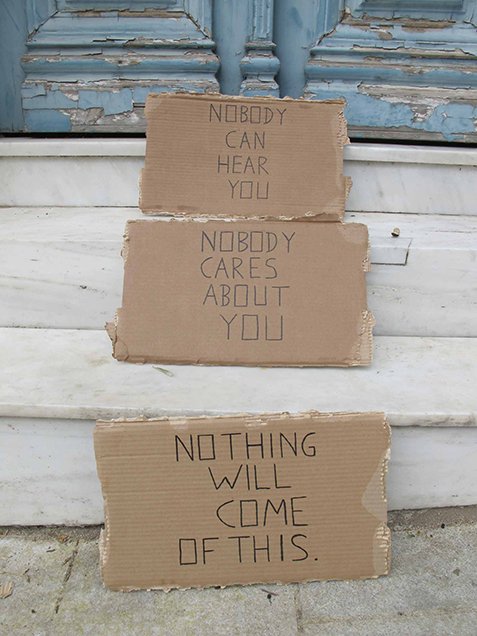 NOBODY
CAN
HEAR
YOU
NOBODY
CARES
ABOUT
YOU
NOTHING
WILL
COME
OF THIS.